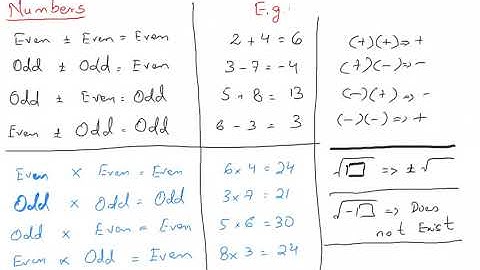 Numbers E.g.
Even ± Even = Even 2 + 4 = 6 (+)(+) => +
Odd ± Odd = Even 3 - 7 = -4 (+)(-) => -
Odd ± Even = Odd 5 + 8 = 13 (-)(+) => -
Even ± Odd = Odd 6 - 3 = 3 (-)(-) => +
Even × Even = Even 6 × 4 = 24 √1□ => ± √
Odd × Odd = Odd 3 × 7 = 21 √-1□ => Does
Odd × Even = Even 5 × 6 = 30 not Exist
Even × Odd = Even 8 × 3 = 24